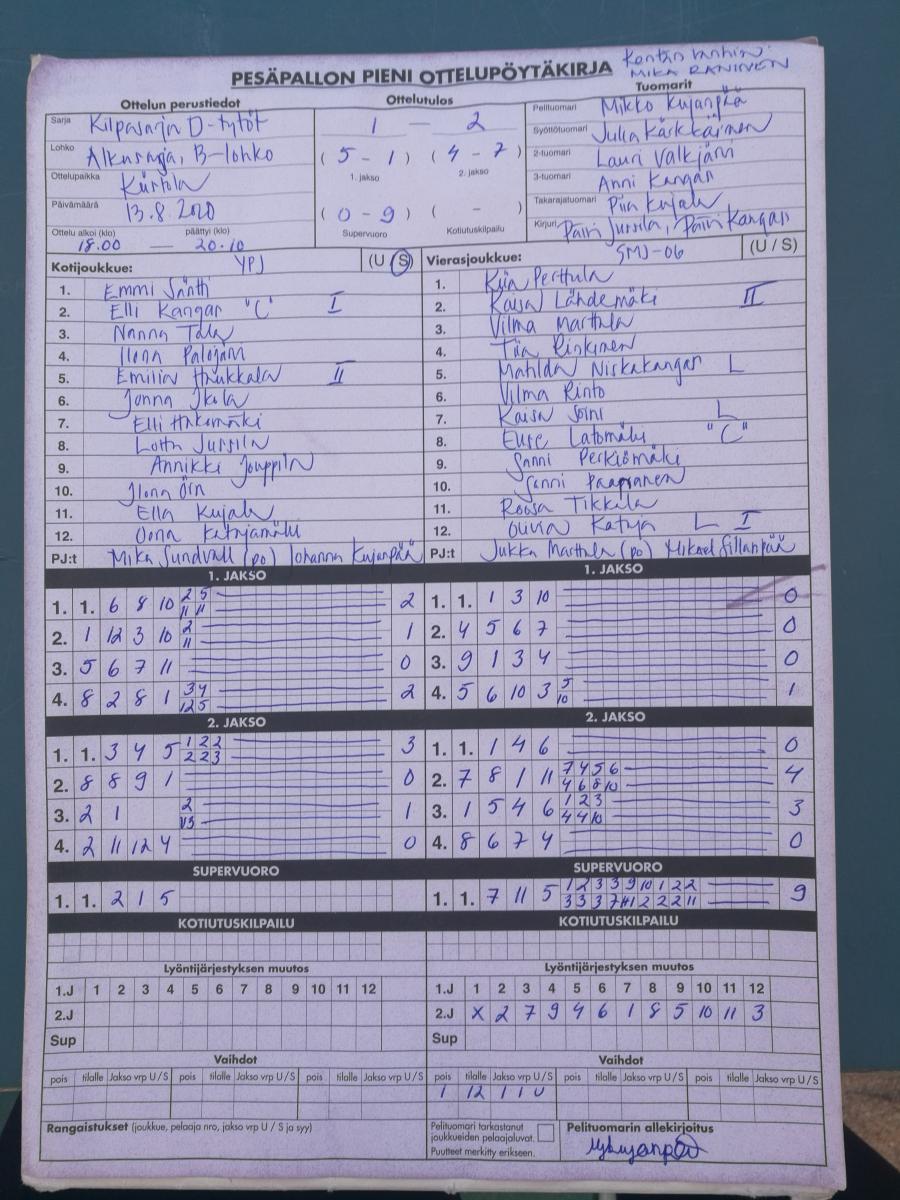 PESÄPALLON PIENI OTTELUPÖYTÄKIRJA
MIKA RANINEN
Ottelun perustiedot Ottelutulos Tuomarit
Sarja Kilpasarja D-tytöt
Lohko Alkusarja, B-lohko
Ottelupaikka Kiirtola
Päivämäärä 13.8.2020
Ottelu alkoi (klo) päättyi (klo)
18.00 — 20.10
1 — 2
( 5 - 1 ) ( 4 - 7 )
1. jakso 2. jakso
( 0 - 9 ) ( - )
Supervuoro Kotiutuskilpailu
Pelituomari Mikko Kujanpää
Syöttötuomari Julia Kärkkäinen
2-tuomari Lauri Valkjärvi
3-tuomari Anni Kangas
Takarajatuomari Piia Kujala
Kirjuri Päivi Jussila, Päivi Kangas
Kotijoukkue: YPJ (U / S)
1. Emmi Säntti
2. Elli Kangas "C" I
3. Nanna Tala
4. Ilona Palojärvi
5. Emilia Haukkala II
6. Jonna Ikola
7. Elli Hakomäki
8. Lotta Jussila
9. Annikki Jouppila
10. Ilona Örn
11. Ella Kujala
12. Oona Katajamäki
PJ:t Mika Sundvall (po) Johanna Kujanpää
Vierasjoukkue: SMJ-06 (U / S)
1. Kiia Perttula
2. Kaisa Lähdemäki II
3. Vilma Marttala
4. Tiia Rinkinen
5. Matilda Niskakangas L
6. Vilma Rinto
7. Kaisa Soini L
8. Eure Latomäki "C"
9. Sanni Perkiömäki
10. Sanni Paapsanen
11. Roosa Tikkala
12. Olivia Katuja L I
PJ:t Jukka Marttala (po) Mikael Sillanpää
1. JAKSO
1. 1. 6 8 10 2 5 2
11 11
2. 1 12 3 10 2 1
11
3. 5 6 7 11 0
4. 8 2 8 1 3 4 2
12 5
1. JAKSO
1. 1. 1 3 10 0
2. 4 5 6 7 0
3. 9 1 3 4 0
4. 5 6 10 3 5 1
10
2. JAKSO
1. 1. 3 4 5 1 2 2 3
2 2 3
2. 8 8 9 1 0
3. 2 1 2 1
4. 2 11 12 4 0
2. JAKSO
1. 1. 1 4 6 0
2. 7 8 1 11 7 4 5 6 4
4 6 8 10
3. 1 5 4 6 1 2 3 3
4 4 10
4. 8 6 7 4 0
SUPERVUORO
1. 1. 2 1 5
SUPERVUORO
1. 1. 7 11 5 1 2 3 3 9 10 1 2 2 9
KOTIUTUSKILPAILU
Lyöntijärjestyksen muutos
1.J 1 2 3 4 5 6 7 8 9 10 11 12
2.J
Sup
KOTIUTUSKILPAILU
Lyöntijärjestyksen muutos
1.J 1 2 3 4 5 6 7 8 9 10 11 12
2.J X 2 7 9 4 6 1 8 5 10 11 3
Sup
Vaihdot
pois tilalle Jakso vrp U/S pois tilalle Jakso vrp U/S pois tilalle Jakso vrp U/S
Vaihdot
pois tilalle Jakso vrp U/S pois tilalle Jakso vrp U/S pois tilalle Jakso vrp U/S
1 12 1 1 U
Rangaistukset (joukkue, pelaaja nro, jakso vrp U / S ja syy)
Pelituomari tarkastanut
joukkueiden pelaajaluvat.
Puutteet merkitty erikseen.
Pelituomarin allekirjoitus